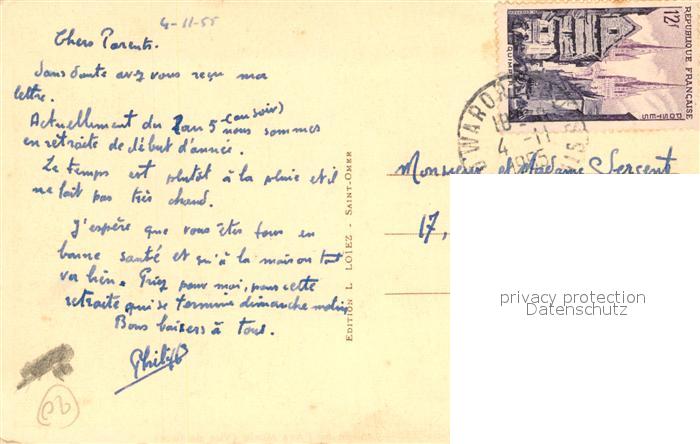 4-11-55
Chers Parents.
Sans doute avez vous reçu ma
lettre.
Actuellement du 2 au 5 (au soir) nous sommes
en retraite de début d'année.
Le temps est plutôt à la pluie et il
ne fait pas très chaud.
J'espère que vous êtes tous en
bonne santé et qu'à la maison tout
va bien. Priez pour moi, pour cette
retraite qui se termine dimanche matin
Bons baisers à tous.
EDITION L. LOIEZ - SAINT-OMER
12f
REPUBLIQUE FRANÇAISE
QUIMPER
POSTES
4 -11
1955
Monsieur et Madame Sergent
17,
privacy protection
Datenschutz